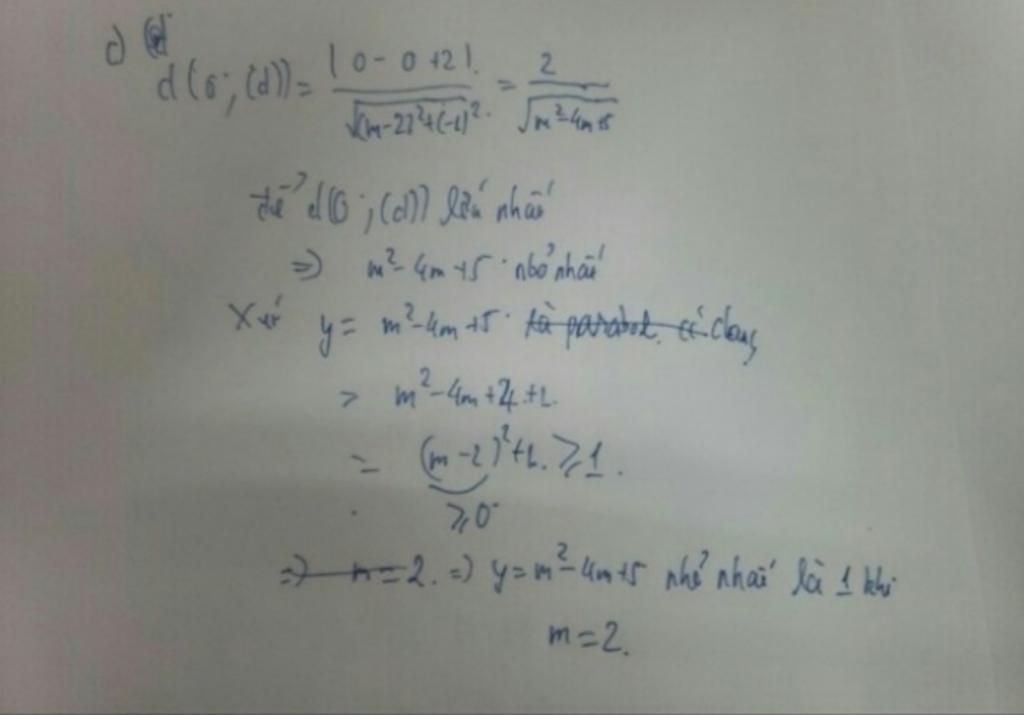 c)
d(O;(d)) = |0-0+2| / √((m-2)²+(-1)²) = 2 / √(m²-4m+5)
để d(O;(d)) lớn nhất
=> m²-4m+5 nhỏ nhất
Xét y = m²-4m+5 là parabol có dạng
= m²-4m+4+1.
= (m-2)²+1 ≥ 1.
≥0
=> m=2. => y=m²-4m+5 nhỏ nhất là 1 khi
m=2.